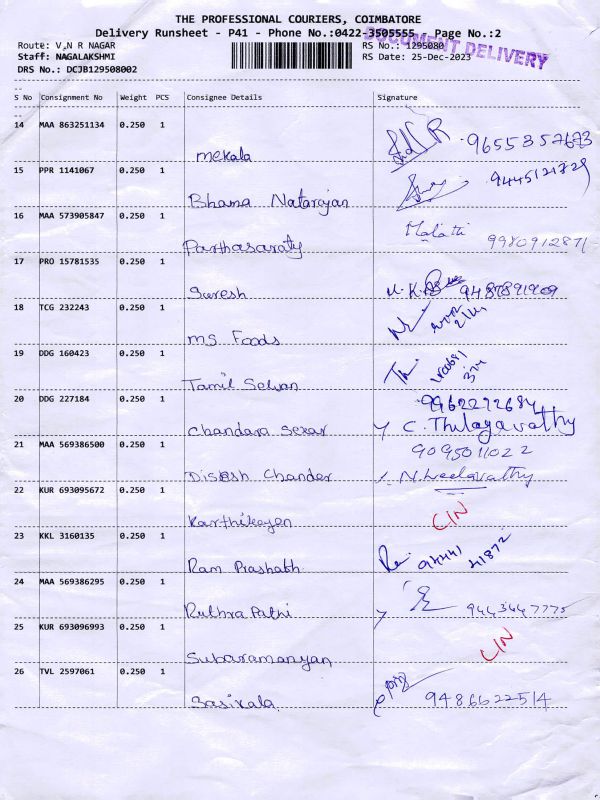 THE PROFESSIONAL COURIERS, COIMBATORE
Delivery Runsheet - P41 - Phone No.:0422-3505555 Page No.:2
DOCUMENT DELIVERY
Route: V,N R NAGAR
RS No.: 1295080
Staff: NAGALAKSHMI
RS Date: 25-Dec-2023
DRS No.: DCJB129508002
S No Consignment No Weight PCS Consignee Details Signature
14 MAA 863251134 0.250 1
Mekala 9655357673
15 PPR 1141067 0.250 1
Bhama Natarajan 9445121729
16 MAA 573905847 0.250 1
Parthasaraty Malathi 9980912871
17 PRO 15781535 0.250 1
Suresh
18 TCG 232243 0.250 1
MS Foods
19 DDG 160423 0.250 1
Tamil Selvan
20 DDG 227184 0.250 1
9962272684
Chandara Sekar C. Thilagavathy
21 MAA 569386500 0.250 1
9095011022
Chander N. Leelavathy
22 KUR 693095672 0.250 1
Karthikeyen CIN
23 KKL 3160135 0.250 1
Ram Prashath 94441 41872
24 MAA 569386295 0.250 1
Ruthra Pathi 9443447775
25 KUR 693096993 0.250 1
Subaramanyan CIN
26 TVL 2597061 0.250 1
Sasikala 9486622514